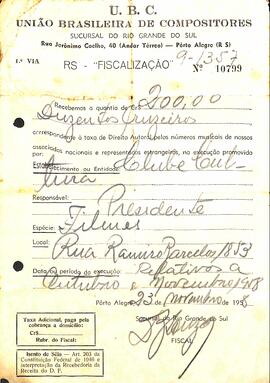 U. B. C.
UNIÃO BRASILEIRA DE COMPOSITORES
SUCURSAL DO RIO GRANDE DO SUL
Rua Jerônimo Coelho, 40 (Andar Térreo) — Pôrto Alegre (R S)
1.ª VIA
RS - "FISCALIZAÇÃO"
9-1357
Nº 10799
Recebemos a quantia de Cr$ 200,00
Duzentos Cruzeiros
correspondente à taxa de Direito Autoral pelos números musicais de nossos
associados nacionais e representados estrangeiros, na execução promovida
Estabelecimento ou Entidade: Clube Cul-
tura
Responsável: Presidente
Espécie: Filmes
Local: Rua Ramiro Barcelos, 1853
Data ou período da execução: Relativos a
Outubro e Novembro/958
Pôrto Alegre, 23 de Novembro de 1958
Sucursal do Rio Grande do Sul
FISCAL
Taxa Adicional, paga pela
cobrança a domicílio:
Cr$
Rubr. do Fiscal:
Isento de Sêlo — Art. 203 da
Constituição Federal de 1946 e
interpretação da Recebedoria da
Receita do D. F.